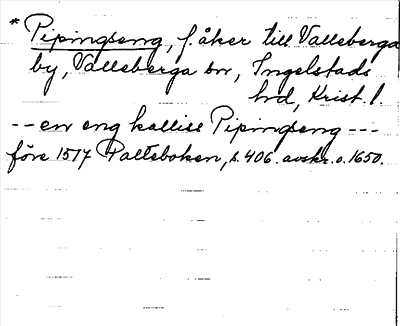 * Pipingseng, f. åker till Valleberga
by, Valleberga sn, Ingelstads
hd, Krist. l.
-- en eng kalliss Pipingseng ---
före 1517 Palteboken, s. 406. avskr. o. 1650.